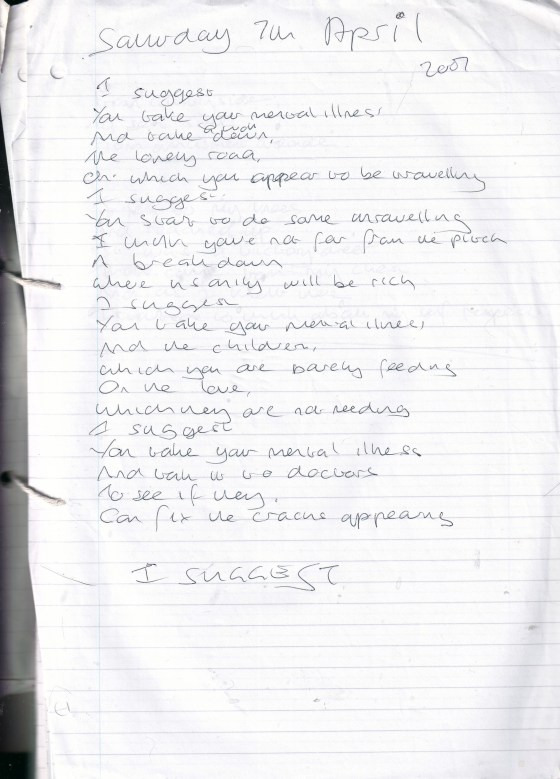 Saturday 7th April
2007
I suggest
You take your mental illness
And take it with down,
The lonely road,
On which you appear to be travelling
I suggest
You start to do some unravelling
I think you're not far from the
A breakdown
where insanity will be rich
I suggest
You take your mental illness,
And the children,
which you are barely feeding
On the love,
which they are not needing
I suggest
You take your mental illness
And talk it to doctors
To see if they,
Can fix the cracks appearing
I SUGGEST